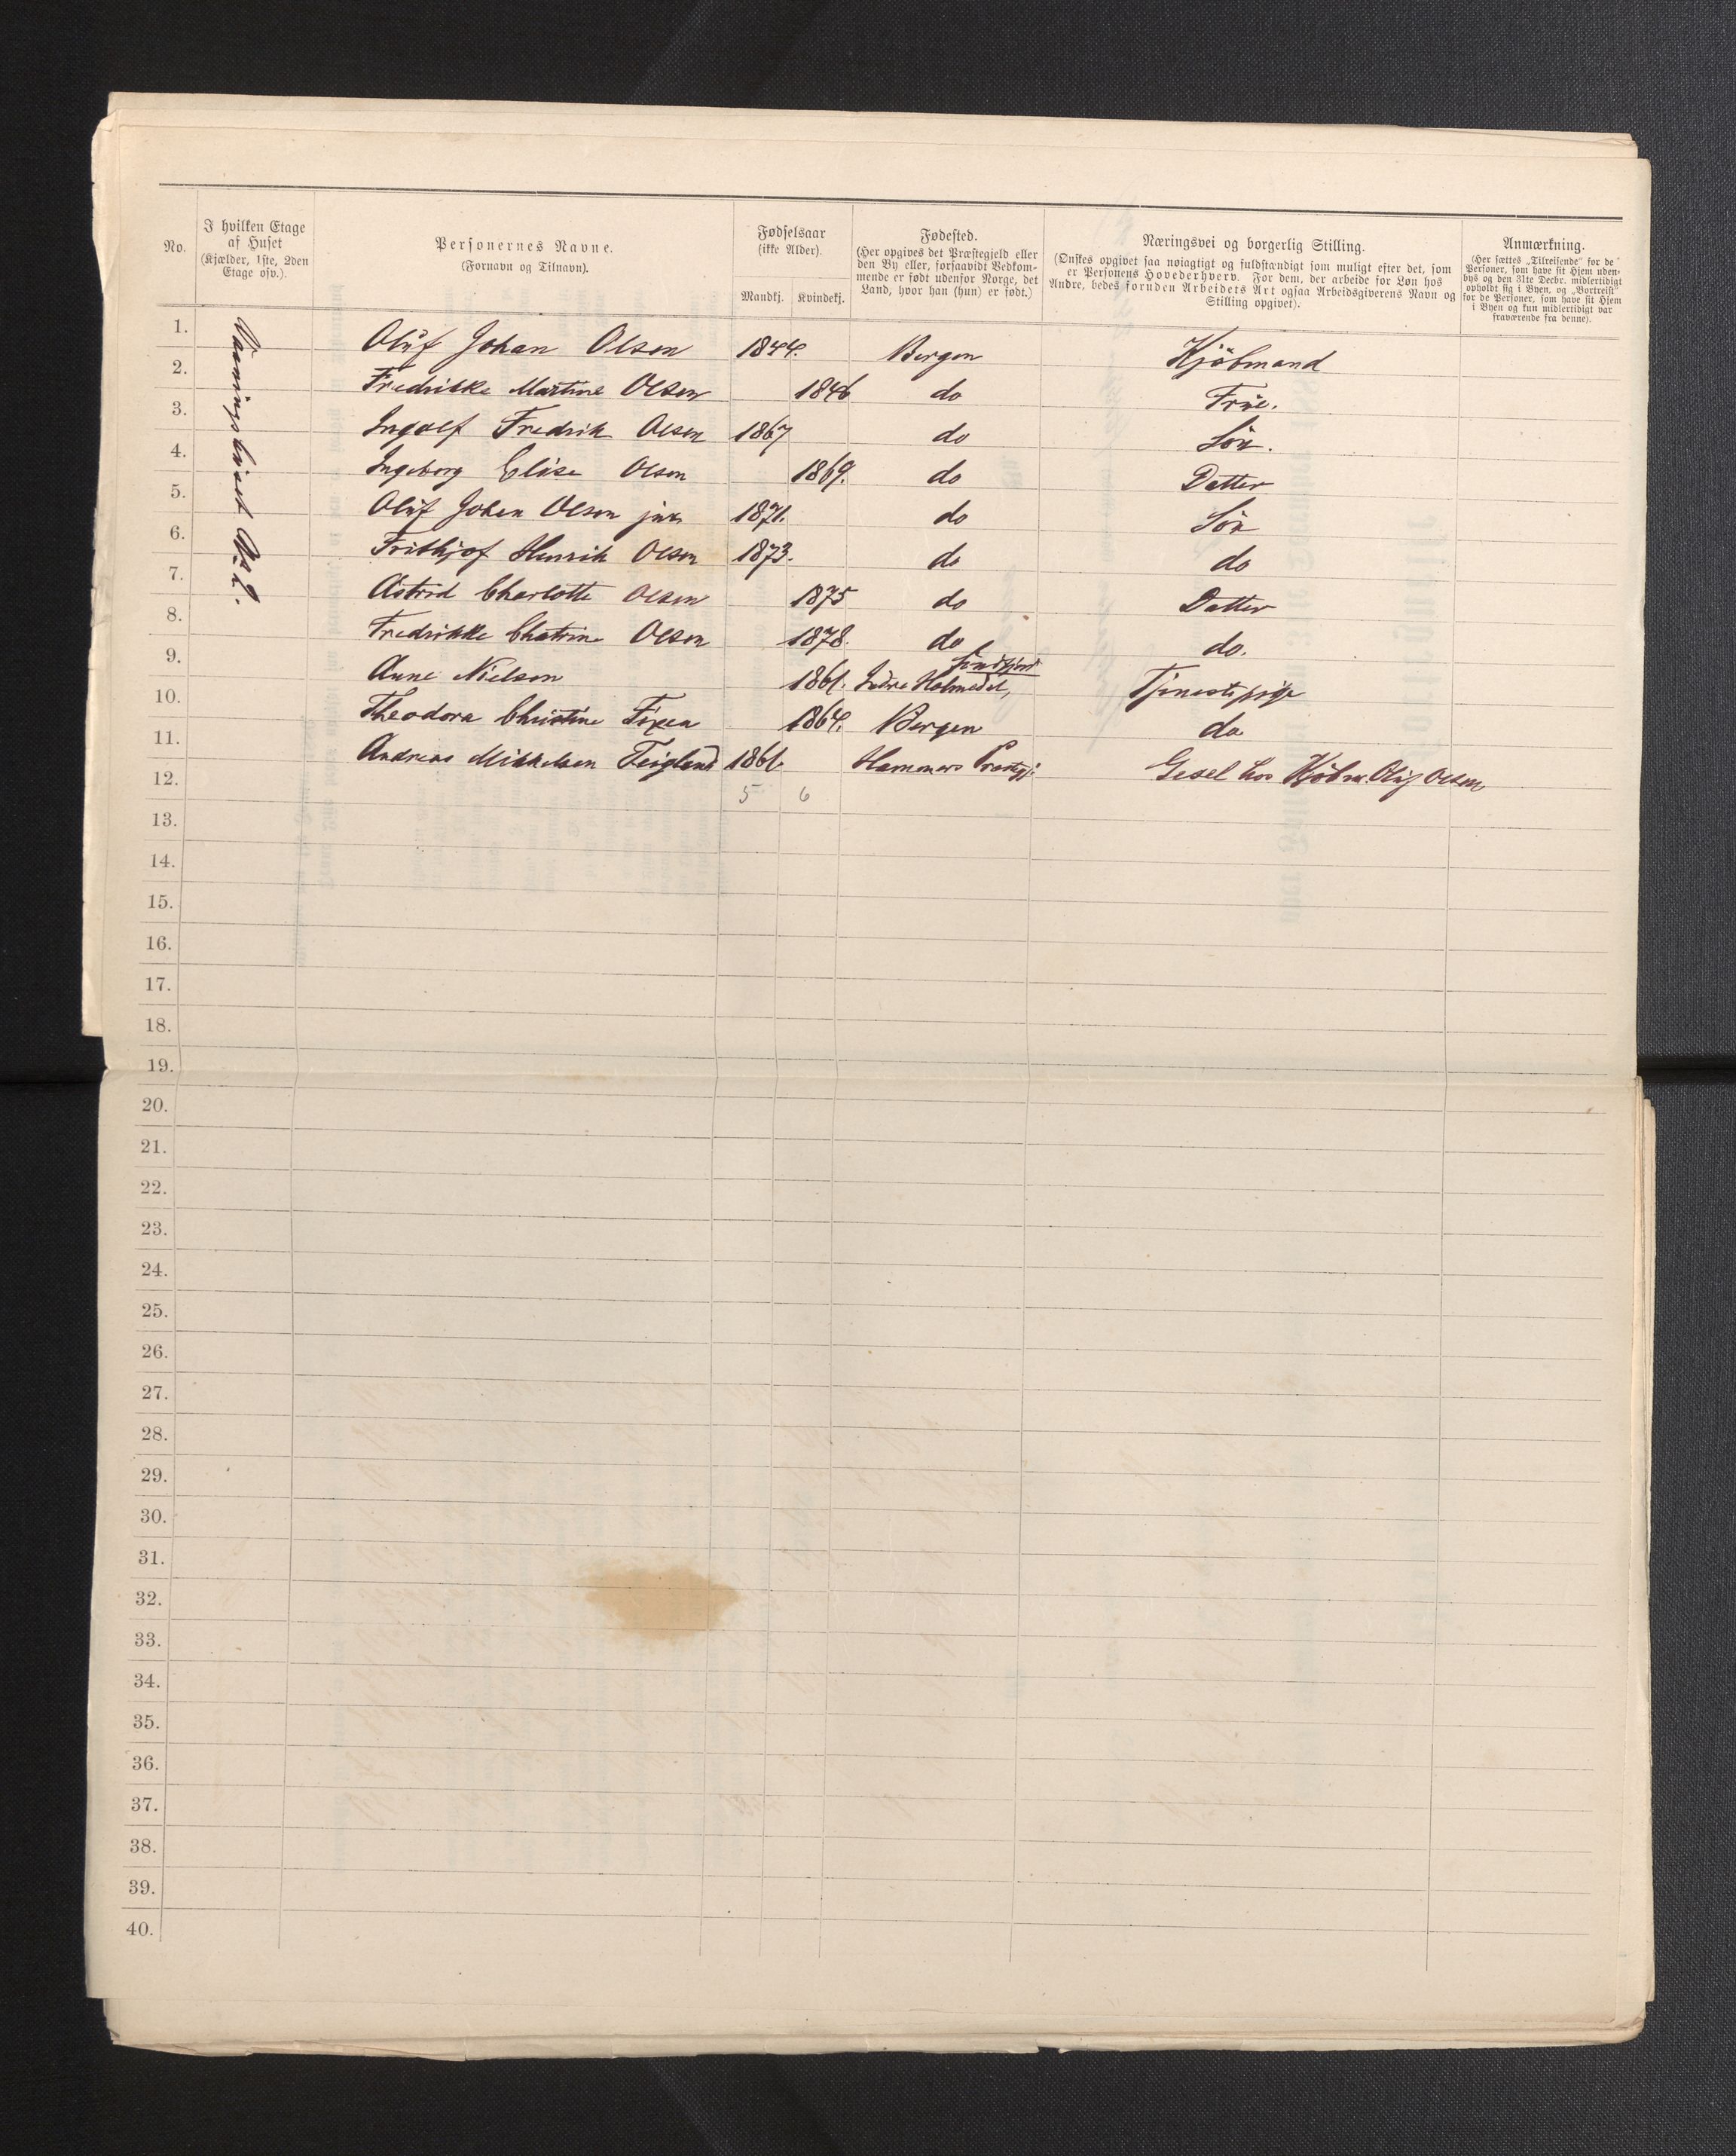 No.
I hvilken Etage
af Huset
(Kjælder, 1ste, 2den
Etage osv.).
Personernes Navne.
(Fornavn og Tilnavn).
Fødselsaar
(ikke Alder).
Mandkj. Kvindekj.
Fødested.
(Her opgives det Præstegjeld eller
den By eller, forsaavidt Vedkom-
mende er født udenfor Norge, det
Land, hvor han (hun) er født.)
Næringsvei og borgerlig Stilling.
(Ønskes opgivet saa nøiagtigt og fuldstændigt som muligt efter det, som
er Personens Hovederhverv. For dem, der arbeide for Løn hos
Andre, bedes foruden Arbeidets Art ogsaa Arbeidsgiverens Navn og
Stilling opgivet).
Anmærkning.
(Her sættes „Tilreisende“ for de
Personer, som have sit Hjem uden-
bys og den 31te Decbr. midlertidigt
opholdt sig i Byen, og „Bortreist“
for de Personer, som have sit Hjem
i Byen og kun midlertidigt var
fraværende fra denne).
Vaaningshuset No 2.
1. Oluf Johan Olsen 1844. Bergen Kjöbmand
2. Fredrikke Martine Olsen 1846 do Frue.
3. Ingolf Fredrik Olsen 1867 do Sön.
4. Ingeborg Elise Olsen 1869. do Datter
5. Oluf Johan Olsen jun 1871. do Sön
6. Frithjof Henrik Olsen 1873. do do
7. Astrid Charlotte Olsen 1875 do Datter
8. Fredrikke Chatrine Olsen 1878. do do.
Söndfjord
9. Anne Nielsen 1861. Indre Holmedal, Tjenestepige
10. Theodora Christine Foxen 1864. Bergen do
11. Andreas Mikkelsen Teigland 1861. Hammers Prestgj: Gesel hos Kjöbm. Oluf Olsen
12. 5 6
13.
14.
15.
16.
17.
18.
19.
20.
21.
22.
23.
24.
25.
26.
27.
28.
29.
30.
31.
32.
33.
34.
35.
36.
37.
38.
39.
40.